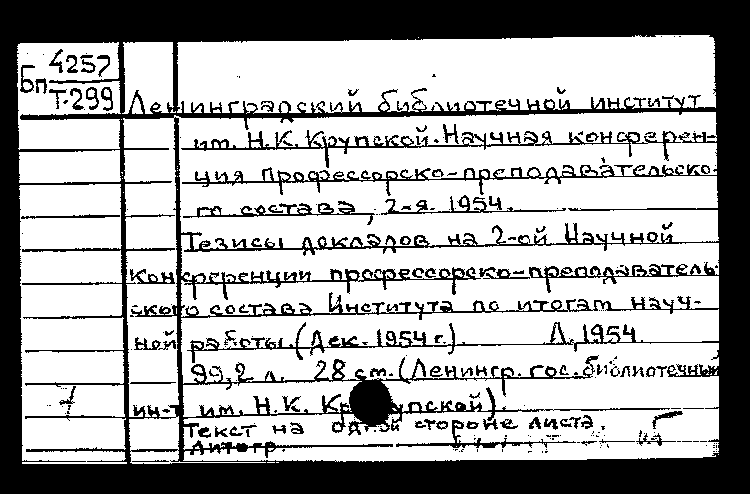 Бп 4257
Т-299
Ленинградский библиотечной институт
им. Н.К. Крупской. Научная конферен-
ция профессорско-преподавательско-
го состава, 2-я. 1954.
Тезисы докладов на 2-ой Научной
конференции профессорско-преподаватель-
ского состава Института по итогам науч-
ной работы. (Дек. 1954 г.). Л., 1954.
99,2 л. 28 см. (Ленингр. гос. библиотечный
ин-т им. Н.К. Крупской).
7
Текст на одной стороне листа.
Литогр.